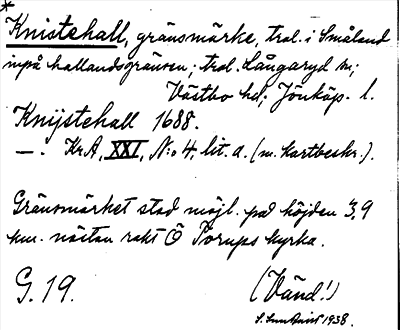 *
Knistehall, gränsmärke, trol. i Småland
inpå hallandsgränsen; trol. Långaryd sn;
Västbo hd; Jönköp. l.
Knijstehall 1688.
—. Kr.A, XXI, N:o 4, lit. a. (m. kartbeskr.).
Gränsmärket stod möjl. på höjden 3,9
km. nästan rakt Ö Torups kyrka.
G. 19. (Vänd!)
1938.